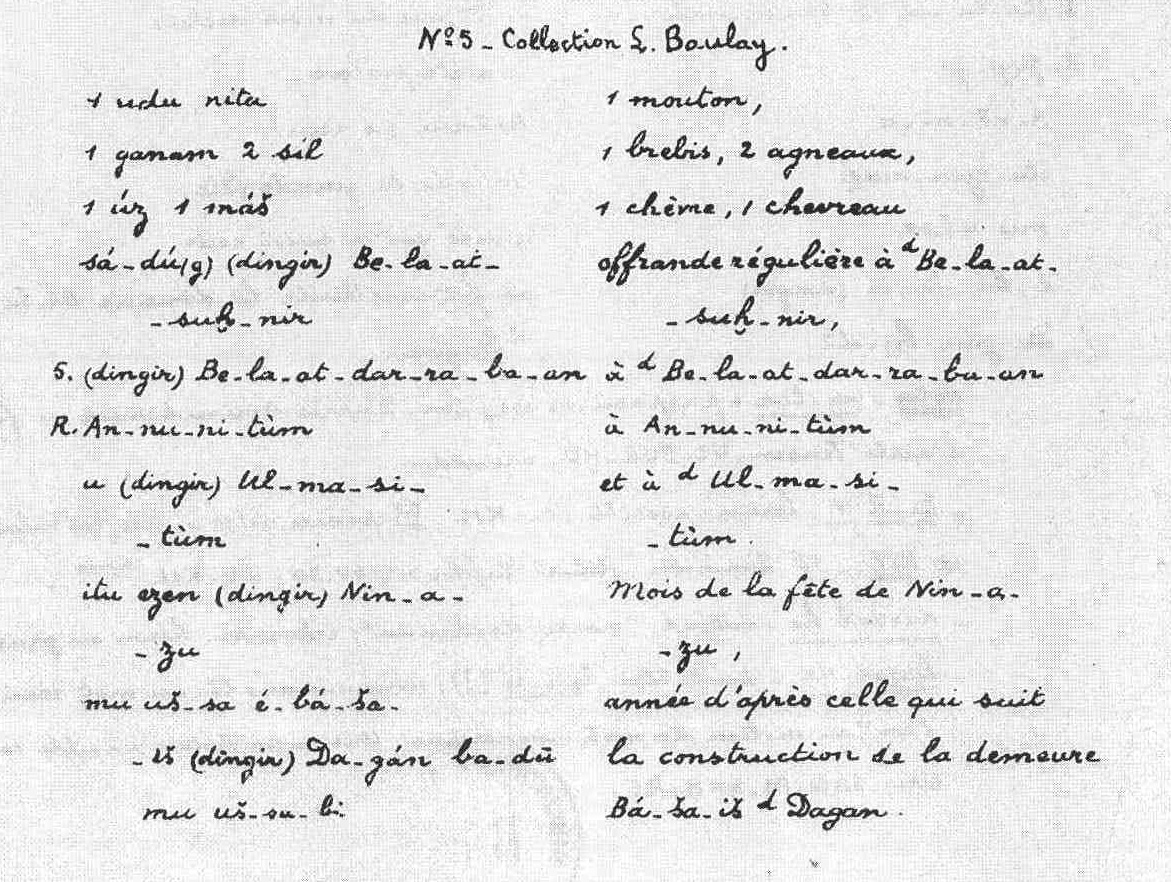 Nº5 - Collection L. Boulay.
1 udu nita 1 mouton,
1 ganam 2 síl 1 brebis, 2 agneaux,
1 úz 1 máš 1 chème, 1 chevreau
sá-dú(g) (dingir) Be-la-at- offrande régulière à ᵈBe-la-at-
-suḫ-nir -suḫ-nir,
5. (dingir) Be-la-at-dar-ra-ba-an à ᵈ Be-la-at-dar-ra-ba-an
R. An-nu-ni-tùm à An-nu-ni-tùm
u (dingir) Ul-ma-si- et à ᵈ Ul-ma-si-
-tùm -tùm.
itu ezen (dingir) Nin-a- Mois de la fête de Nin-a-
-zu -zu,
mu uš-sa é-bá-ša- année d'après celle qui suit
-iš (dingir) Da-gán ba-dū la construction de la demeure
mu uš-sa-bi Bá-ša-iš ᵈ Dagan.